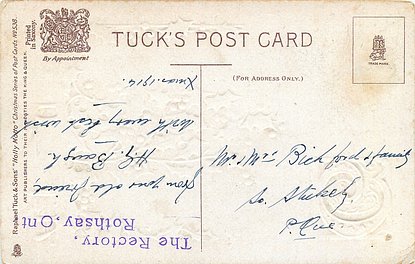 TUCK'S POST CARD
(FOR ADDRESS ONLY.)
By Appointment
Printed
in Saxony.
TRADE MARK
Raphael Tuck & Sons' "Holly Motto" Christmas Series of Post Cards No 538.
ART PUBLISHERS TO THEIR MAJESTIES THE KING & QUEEN.
The Rectory,
Rothsay, Ont
From your old friend,
H.G.
With every best wish
Xmas. 1914.
Mr & Mrs Bickford & family
So. Stukely
P. Que